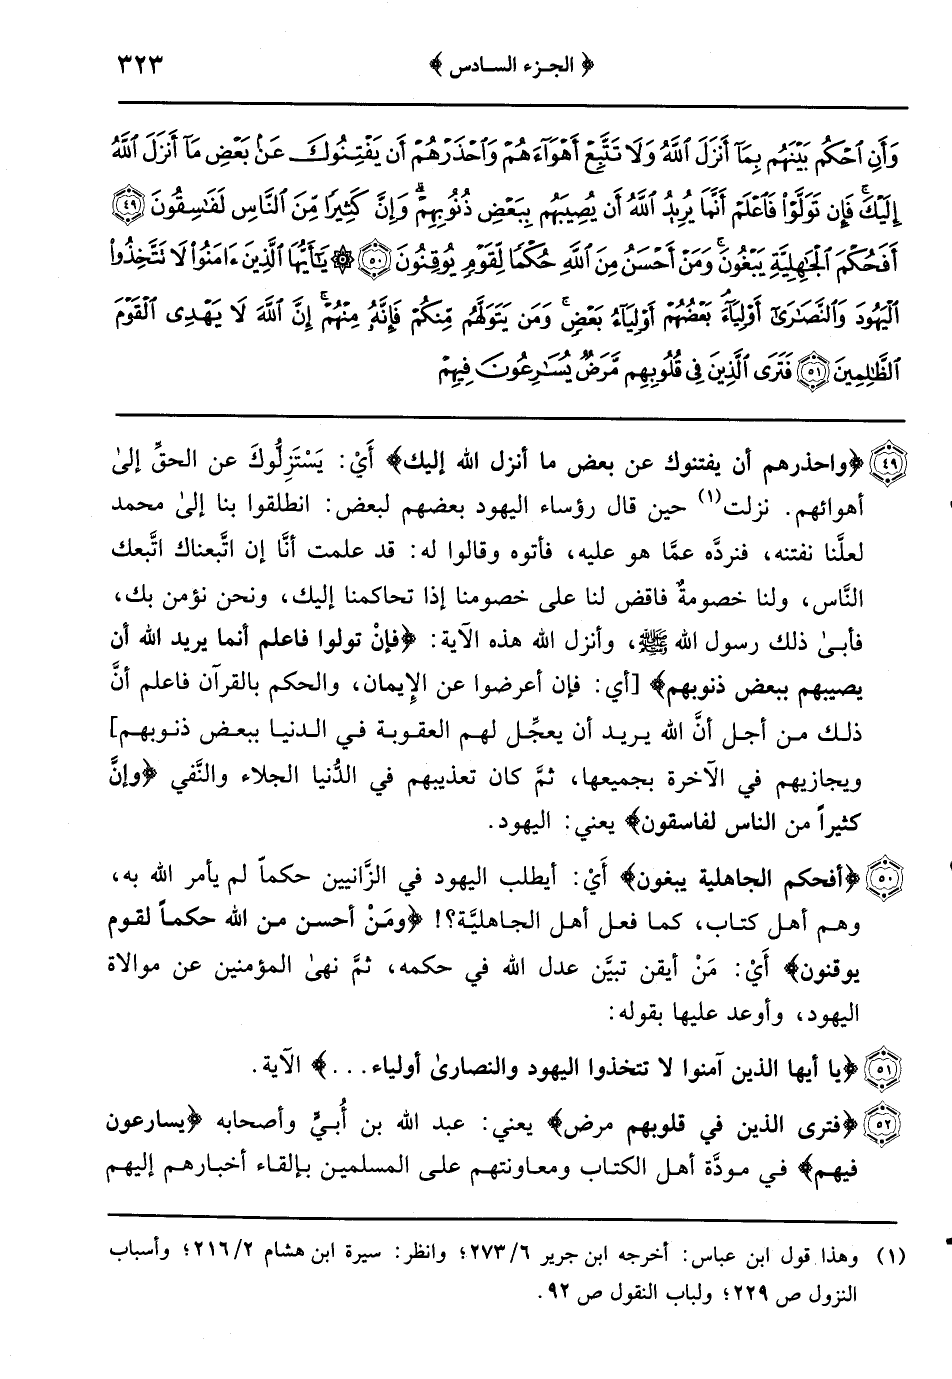 ﴿ الجزء السادس ﴾ ٣٢٣
وَأَنِ ٱحْكُم بَيْنَهُم بِمَآ أَنزَلَ ٱللَّهُ وَلَا تَتَّبِعْ أَهْوَآءَهُمْ وَٱحْذَرْهُمْ أَن يَفْتِنُوكَ عَنۢ بَعْضِ مَآ أَنزَلَ ٱللَّهُ
إِلَيْكَ ۖ فَإِن تَوَلَّوْا۟ فَٱعْلَمْ أَنَّمَا يُرِيدُ ٱللَّهُ أَن يُصِيبَهُم بِبَعْضِ ذُنُوبِهِمْ ۗ وَإِنَّ كَثِيرًا مِّنَ ٱلنَّاسِ لَفَـٰسِقُونَ ﴿٤٩﴾
أَفَحُكْمَ ٱلْجَـٰهِلِيَّةِ يَبْغُونَ ۚ وَمَنْ أَحْسَنُ مِنَ ٱللَّهِ حُكْمًا لِّقَوْمٍ يُوقِنُونَ ﴿٥٠﴾ ۞ يَـٰٓأَيُّهَا ٱلَّذِينَ ءَامَنُوا۟ لَا تَتَّخِذُوا۟
ٱلْيَهُودَ وَٱلنَّصَـٰرَىٰٓ أَوْلِيَآءَ ۘ بَعْضُهُمْ أَوْلِيَآءُ بَعْضٍ ۚ وَمَن يَتَوَلَّهُم مِّنكُمْ فَإِنَّهُۥ مِنْهُمْ ۗ إِنَّ ٱللَّهَ لَا يَهْدِى ٱلْقَوْمَ
ٱلظَّـٰلِمِينَ ﴿٥١﴾ فَتَرَى ٱلَّذِينَ فِى قُلُوبِهِم مَّرَضٌ يُسَـٰرِعُونَ فِيهِمْ
﴿٤٩﴾ ﴿واحذرهم أن يفتنوك عن بعض ما أنزل الله إليك﴾ أَيْ: يَسْتَزِلُّوكَ عن الحقِّ إلىٰ
أهوائهم. نزلت(١) حين قال رؤساء اليهود بعضهم لبعض: انطلقوا بنا إلىٰ محمد
لعلَّنا نفتنه، فنردَّه عمَّا هو عليه، فأتوه وقالوا له: قد علمت أنَّا إن اتَّبعناك اتَّبعك
النَّاس، ولنا خصومةٌ فاقض لنا على خصومنا إذا تحاكمنا إليك، ونحن نؤمن بك،
فأبىٰ ذلك رسول الله ﷺ، وأنزل الله هذه الآية: ﴿فإنْ تولوا فاعلم أنما يريد الله أن
يصيبهم ببعض ذنوبهم﴾ [أي: فإن أعرضوا عن الإِيمان، والحكم بالقرآن فاعلم أنَّ
ذلك من أجل أنَّ الله يريد أن يعجِّل لهم العقوبة في الدنيا ببعض ذنوبهم]
ويجازيهم في الآخرة بجميعها، ثمَّ كان تعذيبهم في الدُّنيا الجلاء والنَّفي ﴿وإنَّ
كثيراً من الناس لفاسقون﴾ يعني: اليهود.
﴿٥٠﴾ ﴿أفحكم الجاهلية يبغون﴾ أَيْ: أيطلب اليهود في الزَّانيين حكماً لم يأمر الله به،
وهم أهل كتاب، كما فعل أهل الجاهليَّة؟! ﴿ومَنْ أحسن من الله حكماً لقوم
يوقنون﴾ أَيْ: مَنْ أيقن تبيَّن عدل الله في حكمه، ثمَّ نهىٰ المؤمنين عن موالاة
اليهود، وأوعد عليها بقوله:
﴿٥١﴾ ﴿يا أيها الذين آمنوا لا تتخذوا اليهود والنصارىٰ أولياء. . .﴾ الآية.
﴿٥٢﴾ ﴿فترى الذين في قلوبهم مرض﴾ يعني: عبد الله بن أُبيٍّ وأصحابه ﴿يسارعون
فيهم﴾ في مودَّة أهل الكتاب ومعاونتهم على المسلمين بإلقاء أخبارهم إليهم
(١) وهذا قول ابن عباس: أخرجه ابن جرير ٢٧٣/٦؛ وانظر: سيرة ابن هشام ٢١٦/٢؛ وأسباب
النزول ص ٢٢٩؛ ولباب النقول ص ٩٢.